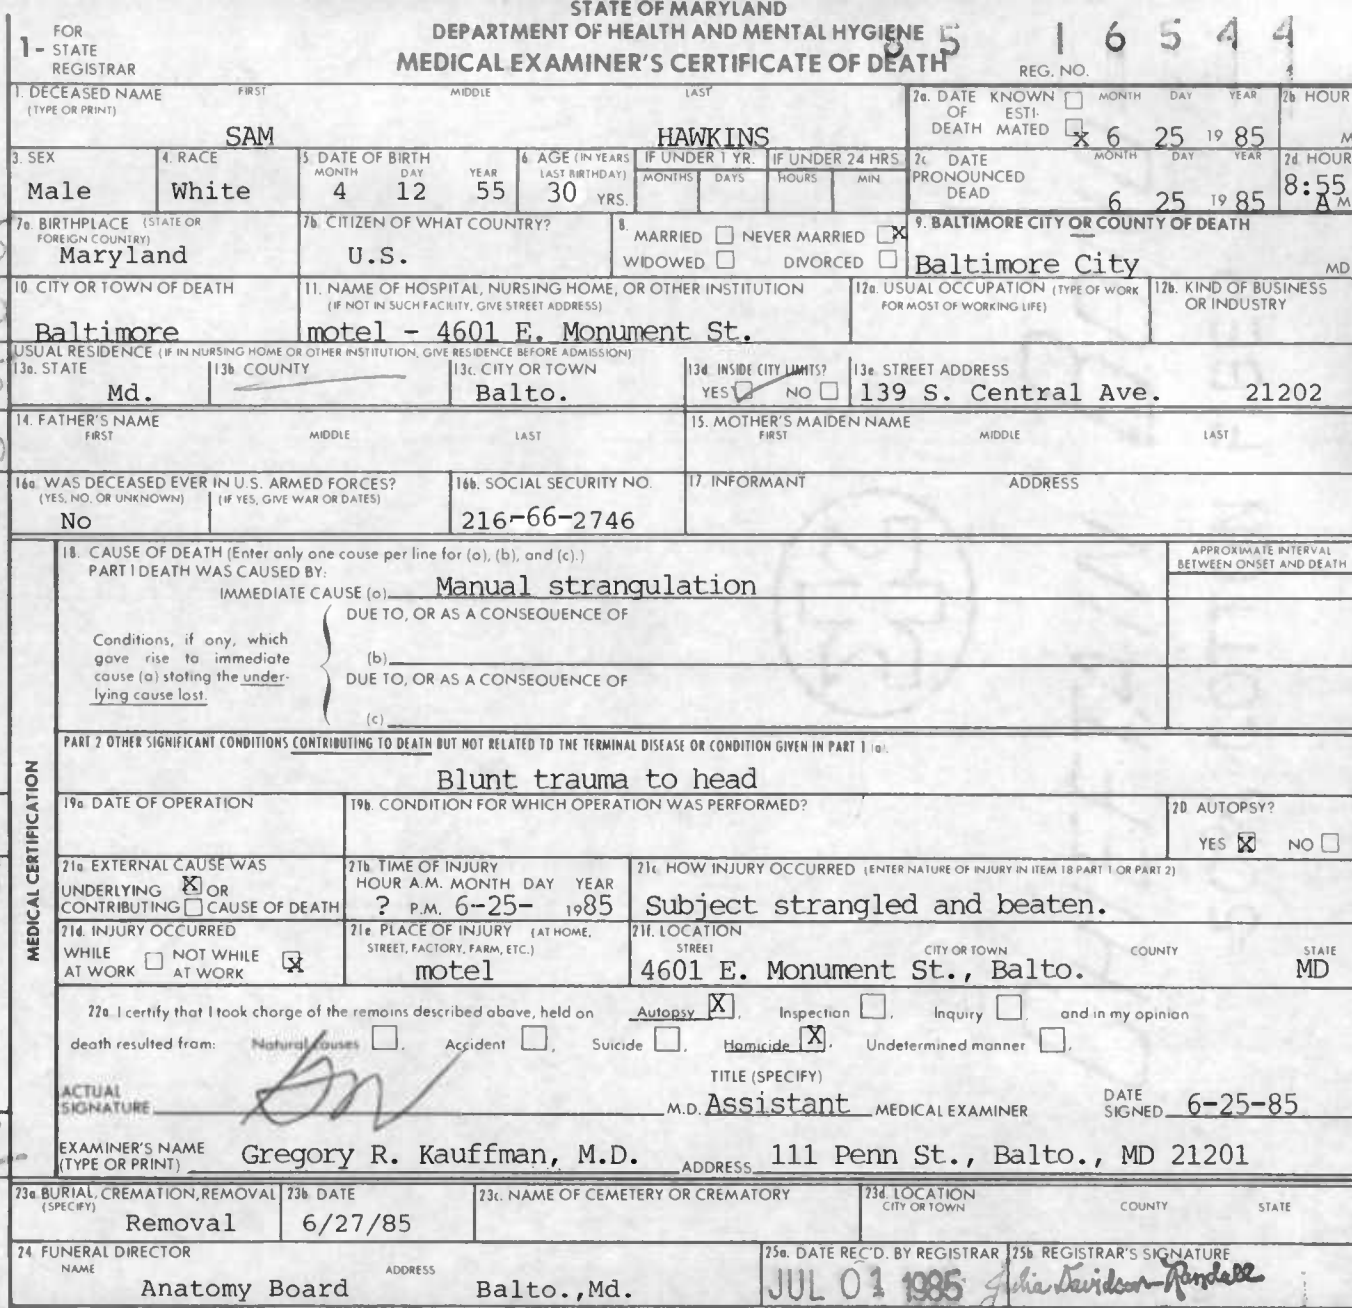 STATE OF MARYLAND
DEPARTMENT OF HEALTH AND MENTAL HYGIENE
MEDICAL EXAMINER'S CERTIFICATE OF DEATH
1- FOR STATE REGISTRAR
REG. NO. 85 16544
1. DECEASED NAME (TYPE OR PRINT) FIRST MIDDLE LAST
SAM HAWKINS
2a. DATE OF DEATH KNOWN ESTIMATED X MONTH DAY YEAR
6 25 1985
2b HOUR M
3. SEX
Male
4. RACE
White
5. DATE OF BIRTH MONTH DAY YEAR
4 12 55
6. AGE (IN YEARS LAST BIRTHDAY)
30 YRS.
IF UNDER 1 YR. MONTHS DAYS
IF UNDER 24 HRS HOURS MIN
2c DATE PRONOUNCED DEAD MONTH DAY YEAR
6 25 1985
2d HOUR
8:55 A M
7a. BIRTHPLACE (STATE OR FOREIGN COUNTRY)
Maryland
7b. CITIZEN OF WHAT COUNTRY?
U.S.
8. MARRIED NEVER MARRIED X
WIDOWED DIVORCED
9. BALTIMORE CITY OR COUNTY OF DEATH
Baltimore City MD
10. CITY OR TOWN OF DEATH
Baltimore
11. NAME OF HOSPITAL, NURSING HOME, OR OTHER INSTITUTION
(IF NOT IN SUCH FACILITY, GIVE STREET ADDRESS)
motel - 4601 E. Monument St.
12a. USUAL OCCUPATION (TYPE OF WORK FOR MOST OF WORKING LIFE)
12b. KIND OF BUSINESS OR INDUSTRY
USUAL RESIDENCE (IF IN NURSING HOME OR OTHER INSTITUTION, GIVE RESIDENCE BEFORE ADMISSION)
13a. STATE
Md.
13b. COUNTY
13c. CITY OR TOWN
Balto.
13d INSIDE CITY LIMITS?
YES NO
13e STREET ADDRESS
139 S. Central Ave. 21202
14. FATHER'S NAME
FIRST MIDDLE LAST
15. MOTHER'S MAIDEN NAME
FIRST MIDDLE LAST
16a. WAS DECEASED EVER IN U.S. ARMED FORCES?
(YES, NO, OR UNKNOWN) (IF YES, GIVE WAR OR DATES)
No
16b. SOCIAL SECURITY NO.
216-66-2746
17. INFORMANT ADDRESS
MEDICAL CERTIFICATION
18. CAUSE OF DEATH (Enter only one cause per line for (a), (b), and (c).)
PART I DEATH WAS CAUSED BY:
IMMEDIATE CAUSE (a) Manual strangulation
APPROXIMATE INTERVAL BETWEEN ONSET AND DEATH
DUE TO, OR AS A CONSEQUENCE OF
Conditions, if any, which
gave rise to immediate
cause (a) stating the under-
lying cause last.
(b)
DUE TO, OR AS A CONSEQUENCE OF
(c)
PART 2 OTHER SIGNIFICANT CONDITIONS CONTRIBUTING TO DEATH BUT NOT RELATED TO THE TERMINAL DISEASE OR CONDITION GIVEN IN PART 1 (a).
Blunt trauma to head
19a. DATE OF OPERATION
19b. CONDITION FOR WHICH OPERATION WAS PERFORMED?
20 AUTOPSY?
YES X NO
21a EXTERNAL CAUSE WAS
UNDERLYING X OR
CONTRIBUTING CAUSE OF DEATH
21b TIME OF INJURY
HOUR A.M. MONTH DAY YEAR
? P.M. 6-25- 1985
21c. HOW INJURY OCCURRED (ENTER NATURE OF INJURY IN ITEM 18 PART 1 OR PART 2)
Subject strangled and beaten.
21d. INJURY OCCURRED
WHILE AT WORK NOT WHILE AT WORK X
21e PLACE OF INJURY (AT HOME, STREET, FACTORY, FARM, ETC.)
motel
21f. LOCATION
STREET CITY OR TOWN COUNTY STATE
4601 E. Monument St., Balto. MD
22a I certify that I took charge of the remains described above, held on Autopsy X, Inspection , Inquiry , and in my opinion
death resulted from: Natural causes , Accident , Suicide , Homicide X, Undetermined manner ,
TITLE (SPECIFY)
ACTUAL SIGNATURE M.D. Assistant MEDICAL EXAMINER DATE SIGNED 6-25-85
EXAMINER'S NAME (TYPE OR PRINT) Gregory R. Kauffman, M.D. ADDRESS 111 Penn St., Balto., MD 21201
23a. BURIAL, CREMATION, REMOVAL (SPECIFY)
Removal
23b. DATE
6/27/85
23c. NAME OF CEMETERY OR CREMATORY
23d. LOCATION
CITY OR TOWN COUNTY STATE
24 FUNERAL DIRECTOR
NAME ADDRESS
Anatomy Board Balto.,Md.
25a. DATE REC'D. BY REGISTRAR
JUL 01 1985
25b. REGISTRAR'S SIGNATURE
Julia Davidson-Randall